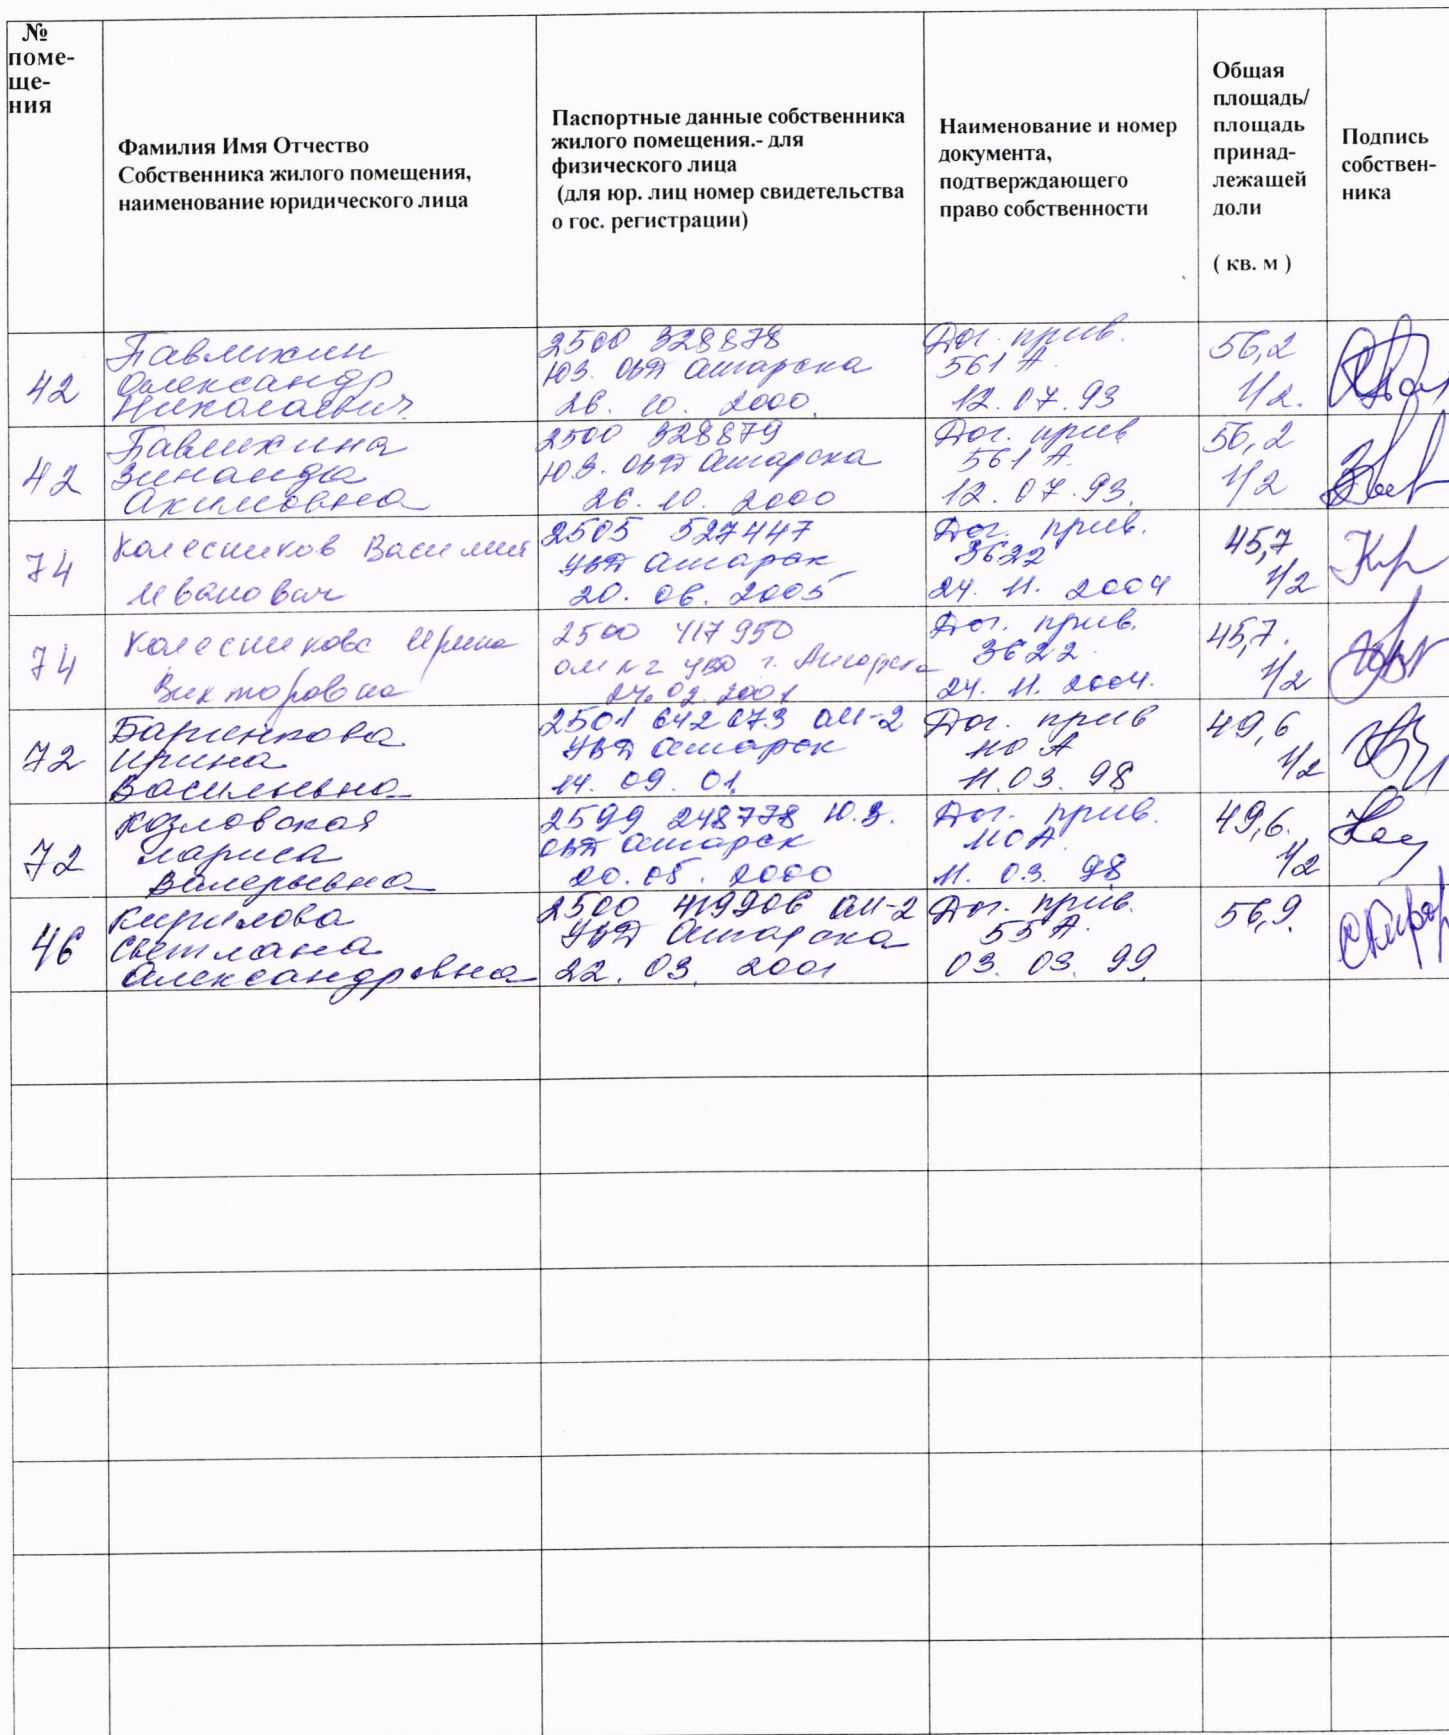 №
поме-
ще-
ния
Фамилия Имя Отчество
Собственника жилого помещения,
наименование юридического лица
Паспортные данные собственника
жилого помещения.- для
физического лица
(для юр. лиц номер свидетельства
о гос. регистрации)
Наименование и номер
документа,
подтверждающего
право собственности
Общая
площадь/
площадь
принад-
лежащей
доли
( кв. м )
Подпись
собствен-
ника
42
Павлихин
Александр
Николаевич
2500 328878
Ю.З. ОВД Ангарска
26. 10. 2000.
Дог. прив.
561 А
12. 07. 93
56,2
1/2.
42
Павлихина
Зинаида
Акимовна
2500 328879
Ю.З. ОВД Ангарска
26. 10. 2000
Дог. прив
561 А.
12. 07. 93.
56,2
1/2
74
Колесников Василий
Иванович
2505 527447
УВД Ангарск
20. 06. 2005
Дог. прив.
3622
24. 11. 2004
45,7
1/2
74
Колесникова Ирина
Викторовна
2500 417950
ОМ №2 УВД г. Ангарска
27.02.2001
Дог. прив.
3622.
24. 11. 2004.
45,7.
1/2
72
Ирина
Васильевна
2501 642673 ОМ-2
УВД Ангарск
14. 09. 01.
Дог. прив
110 А
11. 03. 98
49,6
1/2
72
Козловская
Лариса
Валерьевна
2599 248778 Ю.З.
ОВД Ангарск
20. 05. 2000
Дог. прив.
110 А.
11. 03. 98
49,6.
1/2
46
Кирилова
Светлана
Александровна
2500 419906 ОМ-2
УВД Ангарска
22. 03. 2001
Дог. прив.
55 А.
03. 03. 99.
56,9.